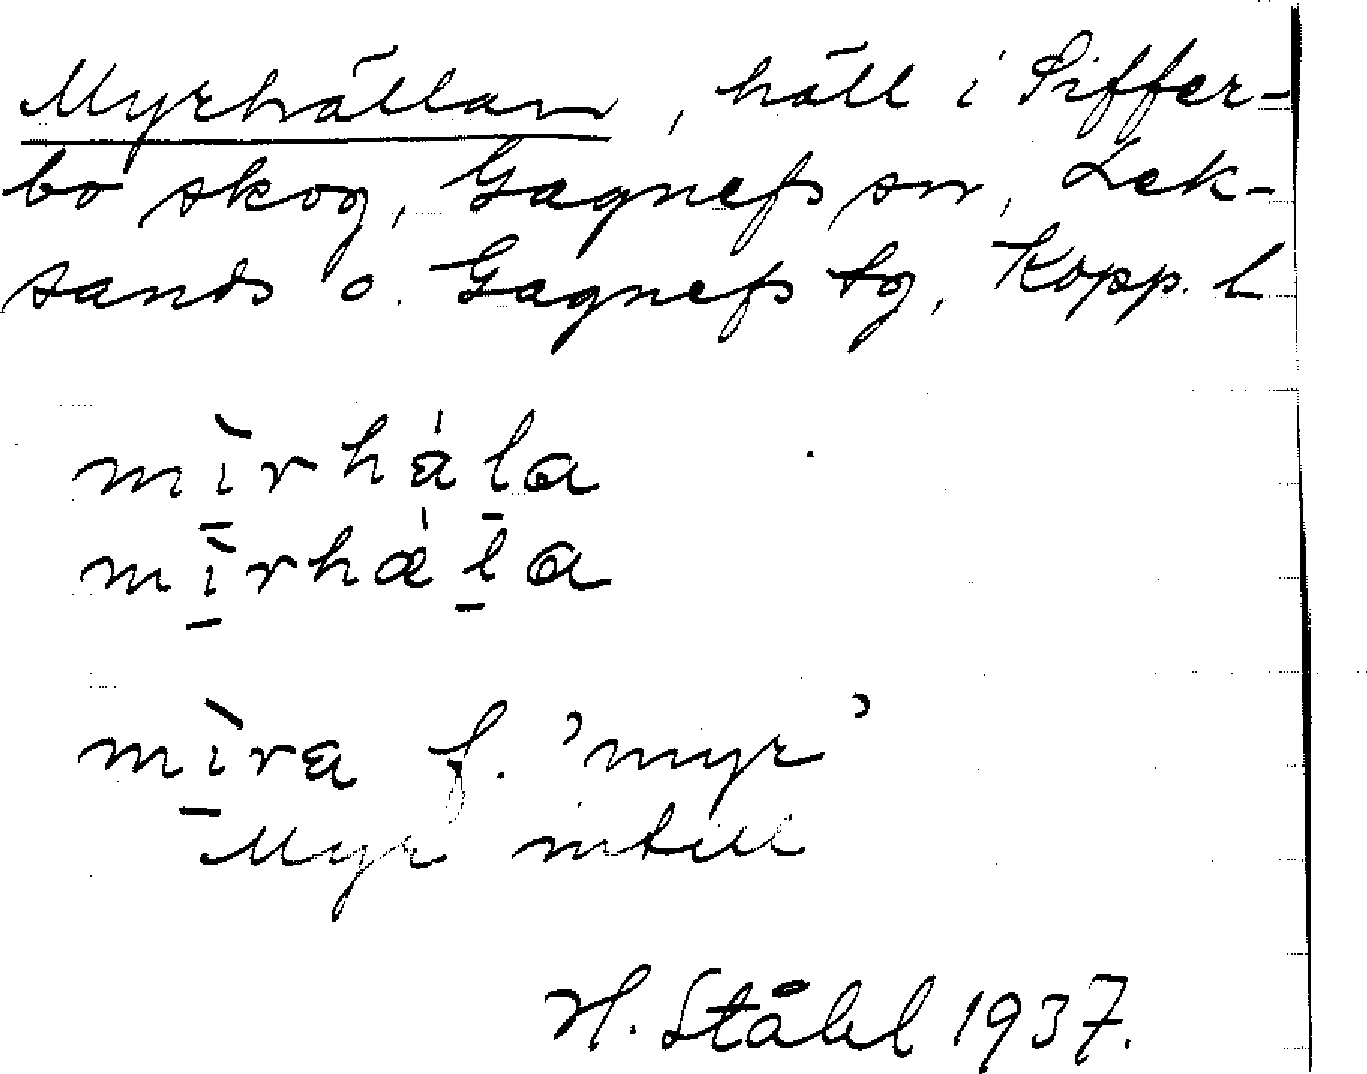 Myrhällan, häll i Siffer-
bo skog, Gagnefs sn, Lek-
sands o. Gagnefs tg, Kopp. l
mìrhàla
mìrhàla
mìra f. 'myr'
Myr intill
H. Ståhl 1937.